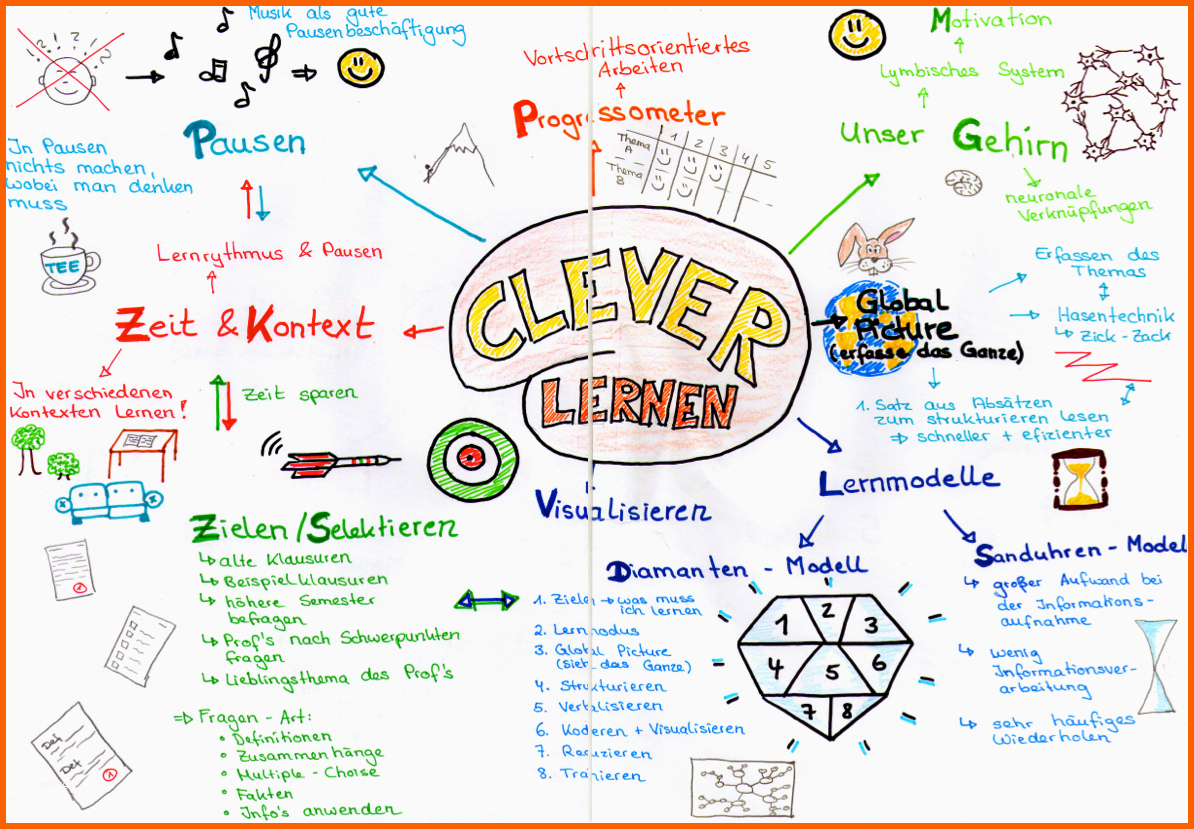 CLEVER
LERNEN
Musik als gute
Pausenbeschäftigung
Pausen
In Pausen
nichts machen,
wobei man denken
muss
TEE
Vortschrittsorientiertes
Arbeiten
Progressometer
1 2 3 4 5
Thema
A
Thema
B
Motivation
Lymbisches System
Unser Gehirn
neuronale
Verknüpfungen
Global
Picture
(erfasse das Ganze)
Erfassen des
Themas
Hasentechnik
Zick-Zack
1. Satz aus Absätzen
zum strukturieren lesen
⇒ schneller + efizienter
Lernrythmus & Pausen
Zeit & Kontext
In verschiedenen
Kontexten Lernen!
Zeit sparen
Zielen/Selektieren
alte Klausuren
Beispielklausuren
höhere Semester
befragen
Prof's nach Schwerpunkten
fragen
Lieblingsthema des Prof's
⇒ Fragen - Art:
• Definitionen
• Zusammenhänge
• Multiple - Choise
• Fakten
• Info's anwenden
Def
Def
1
1
Visualisieren
Lernmodelle
Diamanten - Modell
1. Ziele → was muss
ich lernen
2. Lernmodus
3. Global Picture
(sieh das Ganze)
4. Strukturieren
5. Verbalisieren
6. Kodieren + Visualisieren
7. Reduzieren
8. Trainieren
1 2 3
4 5 6
7 8
Sanduhren - Model
großer Aufwand bei
der Informations-
aufnahme
wenig
Informationsver-
arbeitung
sehr häufiges
Wiederholen